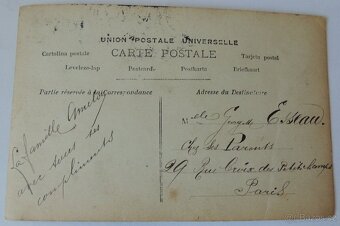 UNION POSTALE UNIVERSELLE
CARTE POSTALE
Cartolina postale
Tarjeta postal
Levelezo-lap
Postcard.
Postkarta
Briefkaart
Partie réservée à la Correspondance
Adresse du Destinataire
La famille
avec tous ses
compliments
Melle Georgette
Chez ses Parents
29 Rue Croix des Petits-champs
Paris